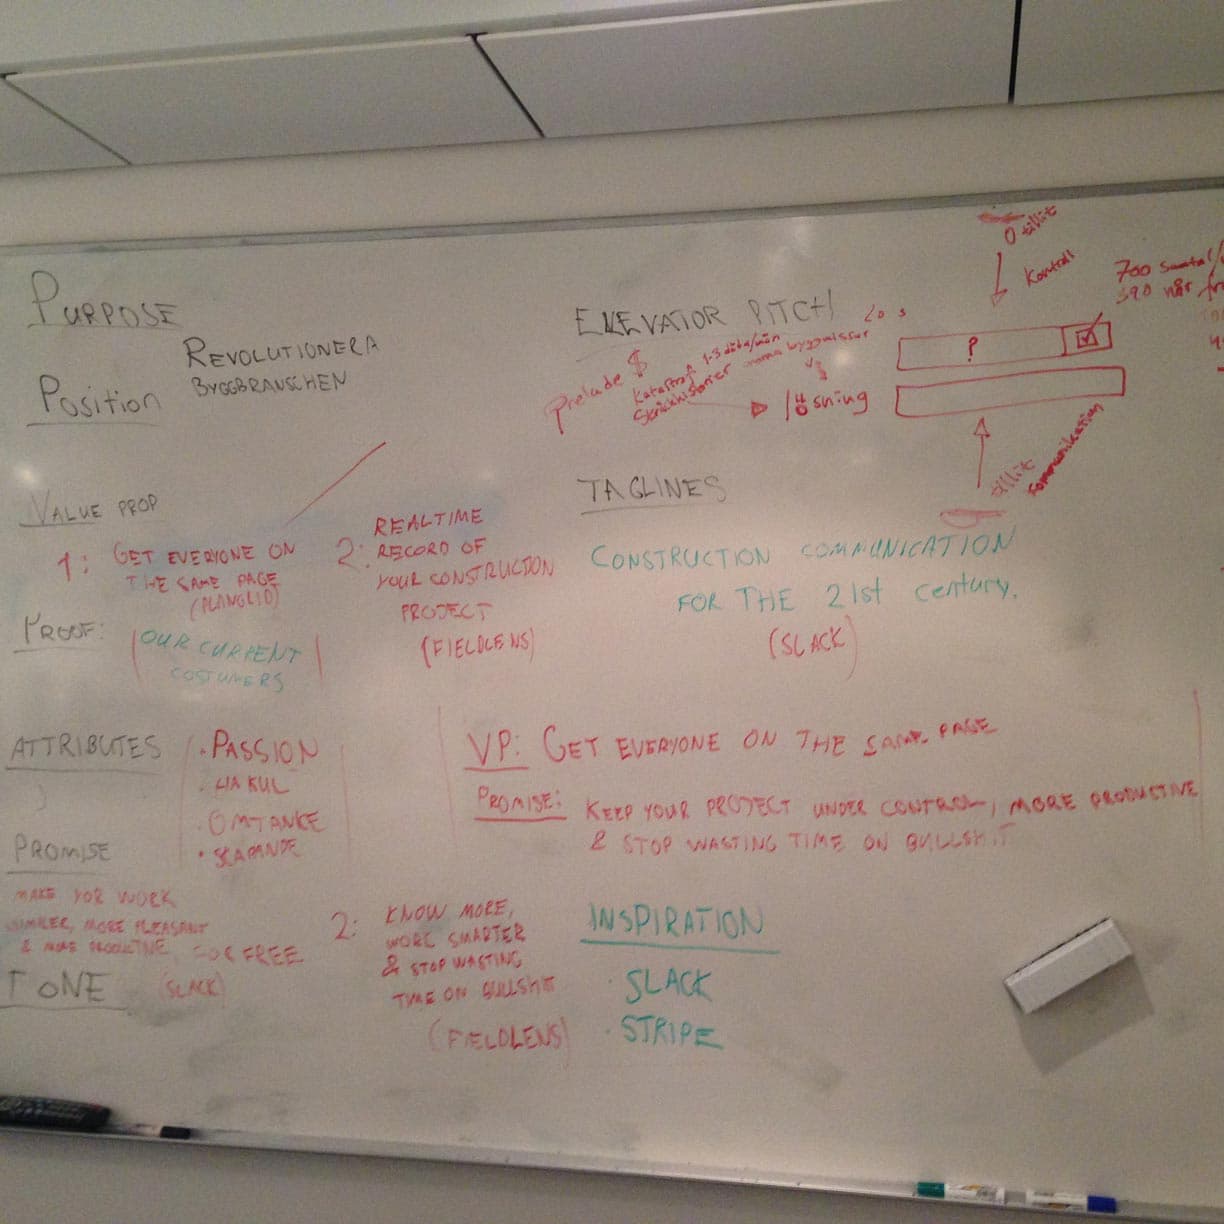 PURPOSE
REVOLUTIONERA
BYGGBRANSCHEN
POSITION
VALUE PROP
1: GET EVERYONE ON
THE SAME PAGE
(PLANGLID)
2: REALTIME
RECORD OF
YOUR CONSTRUCTION
PROJECT
(FIELDLENS)
PROOF:
OUR CURRENT
COSTUMERS
ATTRIBUTES
• PASSION
• HA KUL
• OMTANKE
• SKAPANDE
PROMISE
MAKE YOR WORK
SIMPLER, MORE PLEASANT
& MORE PRODUCTIVE, FOR FREE
(SLACK)
2: KNOW MORE,
WORK SMARTER
& STOP WASTING
TIME ON BULLSHIT
(FIELDLENS)
TONE
ELEVATOR PITCH
prelude $
Katastrof 1-3
Skräckhistorier
lösning
0 tillit
Kontroll
700 samtal/
390 når
?
tillit
kommunikation
TAGLINES
CONSTRUCTION COMMUNICATION
FOR THE 21st century.
(SLACK)
VP: GET EVERYONE ON THE SAME PAGE
PROMISE: KEEP YOUR PROJECT UNDER CONTROL, MORE PRODUCTIVE
& STOP WASTING TIME ON BULLSHIT
INSPIRATION
• SLACK
• STRIPE